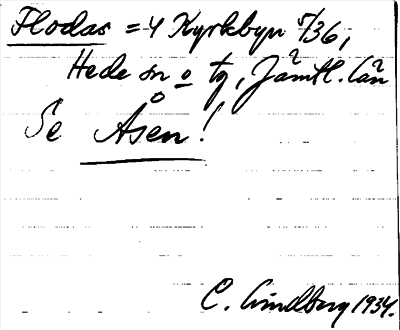 Flodas = 4 Kyrkbyn 5/36,
Hede sn o tg, Jämtl. län
Se Åsen!
C. Lindberg 1934.